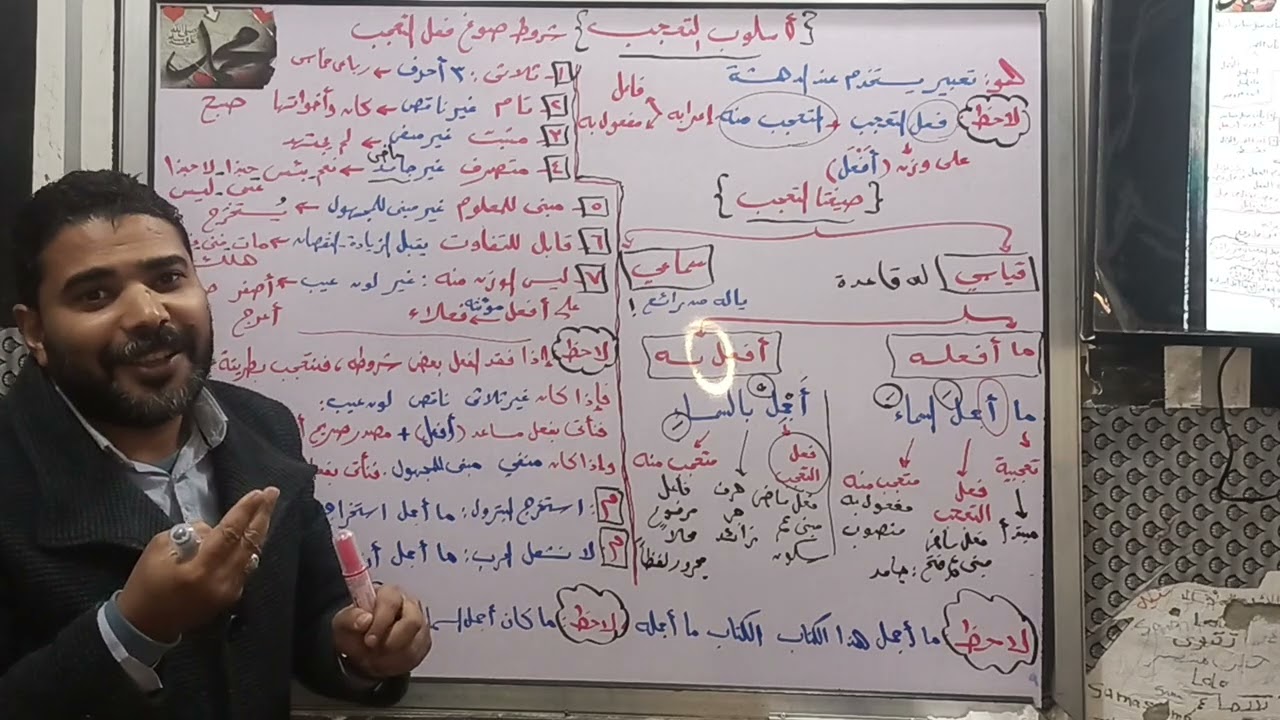 {أسلوب التعجب} شروط صوغ فعل التعجب
هو: تعبير يستخدم عند الدهشة
لاحظ فعل التعجب + المتعجب منه إعرابه
فاعل
مفعول به
على وزنه (أَفْعَل)
{صيغتا التعجب}
قياسي له قاعدة
سماعي
ياله من رائع!
ما أفعله
أفعل به
ما أجمل السماء
تعجبية
مبتدأ
فعل التعجب
فعل ماضٍ
مبنى على فتح: جامد
متعجب منه
مفعول به
منصوب
أَجْمِل بالسماء
فعل التعجب
فعل ماضي
مبنى على
سكون
حرف
جر
زائد
متعجب منه
فاعل
مرفوع
محلاً
مجرور لفظاً
١- ثلاثى: ٣ أحرف ← رباعى خماسى
٢- تام غير ناقص ← كان وأخواتها صبح
٣- مثبت غير منفى ← لم يشتد
٤- متصرف غير جامد ← نعم بئس حبذا - لاحبذا
ماضى
عسى - ليس
٥- مبنى للمعلوم غير مبنى للمجهول ← يُستخرج
٦- قابل للتفاوت يقبل الزيادة - النقصان ← مات
هلك
٧- ليس الوزن منه: غير لون عيب ← أصفر
على أفعل مؤنثه فعلاء أعرج
لاحظ إذا فقد الفعل بعض شروطه، فنتعجب بطريقة
فإذا كان غير ثلاثى ناقص لون عيب:
فنأتى بفعل مساعد (أفعل) + مصدر صريح
وإذا كان منفي مبنى للمجهول. فنأتى بفعل
م: استخرج البترول: ما أجمل استخراج
م: لا نشعل الحرب: ما أجمل أن
لاحظ ما أجمل هذا الكتاب الكتاب ما أجمله
لاحظ: ما كان أجمل السماء